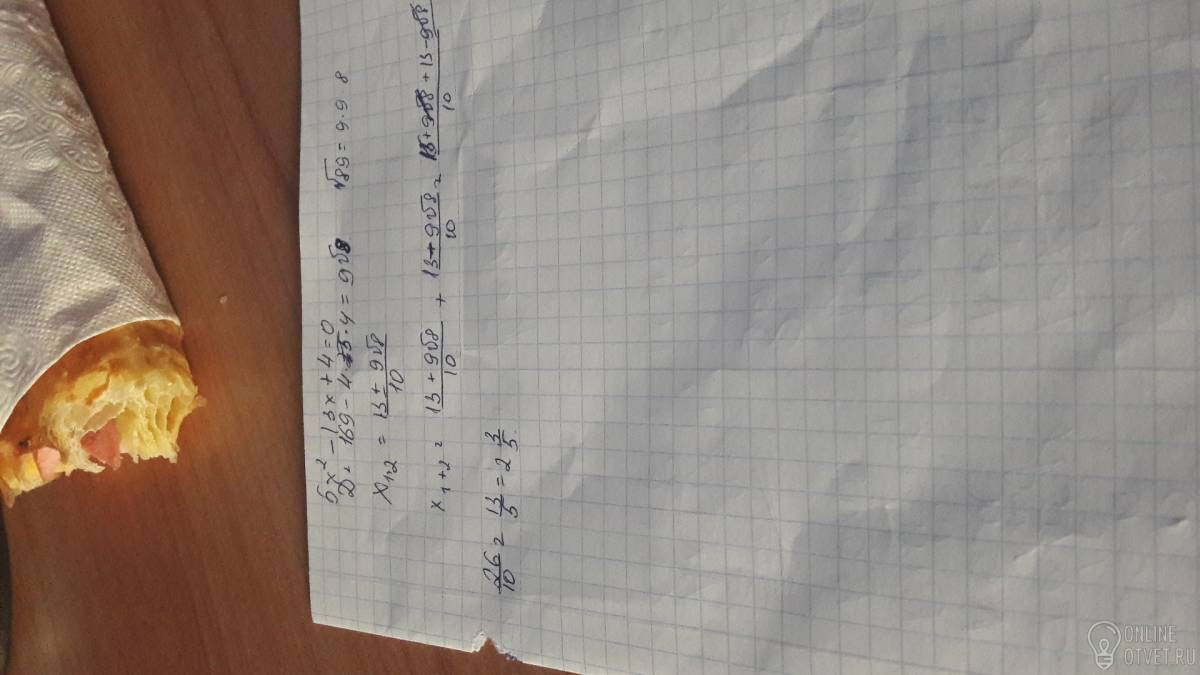 5x² - 13x + 4 = 0
D = 169 - 4 · 5 · 4 = 9√8 √89 = 9 · 9 · 8
x₁,₂ = (13 ± 9√8)/10
x₁+₂ = (13 + 9√8)/10 + (13 - 9√8)/10 = (13 + 9√8 + 13 - 9√8)/10
26/10 = 13/5 = 2 3/5.
ONLINE
OTVET.RU